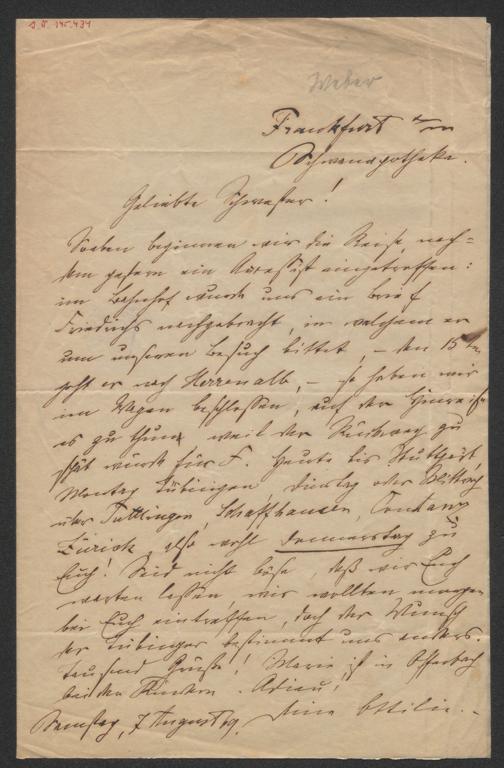 Weber
Frankfurt a/m
Schwanapotheke.
Geliebte Schwester!
Soeben beginnen wir die Reise, nach=
dem gestern ein eingetroffen:
im Bahnhof wurde uns ein Brief
Friedrichs nachgebracht, in welchem er
um unseren Besuch bittet, – den 15ten
geht er nach Herrenalb, – so haben wir
im Wagen beschlossen, auf der Hinreise
es zu thun, weil der Rückweg zu
spät würde für F. Heute bis Stuttgart,
Montag Tübingen, Dienstag oder Mittwoch
über Tuttlingen, Schaffhausen, Constanz
Zürich, also wohl Donnerstag zu
Euch! Seid nicht böse, daß wir Euch
warten lassen, wir wollten morgen
bei Euch eintreffen, doch der Wunsch
der Tübinger bestimmt uns anders.
Tausend Grüße! Marie ist in Offenbach
bei den Kindern. Adieu!
Samstag, 7 August 69. Deine Ottilie.